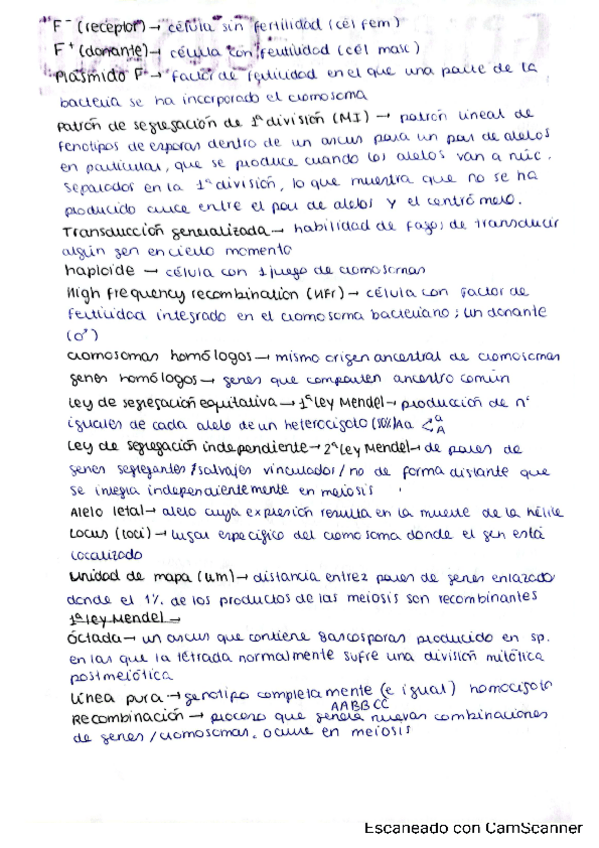 F⁻ (receptor) → célula sin fertilidad (cél fem)
F⁺ (donante) → célula con fertilidad (cél masc)
Plásmido F → factor de fertilidad en el que una parte de la
bacteria se ha incorporado el cromosoma
Patrón de segregación de 1ª división (MI) → patrón lineal de
fenotipos de esporas dentro de un ascus para un par de alelos
en particular, que se produce cuando los alelos van a núc.
separados en la 1ª división, lo que muestra que no se ha
producido cruce entre el par de alelos y el centrómero.
Transducción generalizada → habilidad de fagos de transducir
algún gen en cierto momento
haploide → célula con 1 juego de cromosomas
High frequency recombination (HFr) → célula con factor de
fertilidad integrado en el cromosoma bacteriano; un donante
(♂)
cromosomas homólogos → mismo origen ancestral de cromosomas
genes homólogos → genes que comparten ancestro común
Ley de segregación equitativa → 1ª Ley Mendel → producción de nº
iguales de cada alelo de un heterocigoto (50%) Aa < a
A
Ley de segregación independiente → 2ª Ley Mendel → de pares de
genes segregantes / salvajes vinculados / no de forma distante que
se integra independientemente en meiosis
Alelo letal → alelo cuya expresión resulta en la muerte de la
Locus (loci) → lugar específico del cromosoma donde el gen está
localizado
Unidad de mapa (um) → distancia entre pares de genes enlazados
donde el 1% de los productos de las meiosis son recombinantes
1ª Ley Mendel →
Óctada → un ascus que contiene 8 ascosporas producido en sp.
en las que la tétrada normalmente sufre una división mitótica
postmeiótica
Línea pura → genotipo completamente (e igual) homocigoto
AABBCC
Recombinación → proceso que genera nuevas combinaciones
de genes / cromosomas. ocurre en meiosis
Escaneado con CamScanner